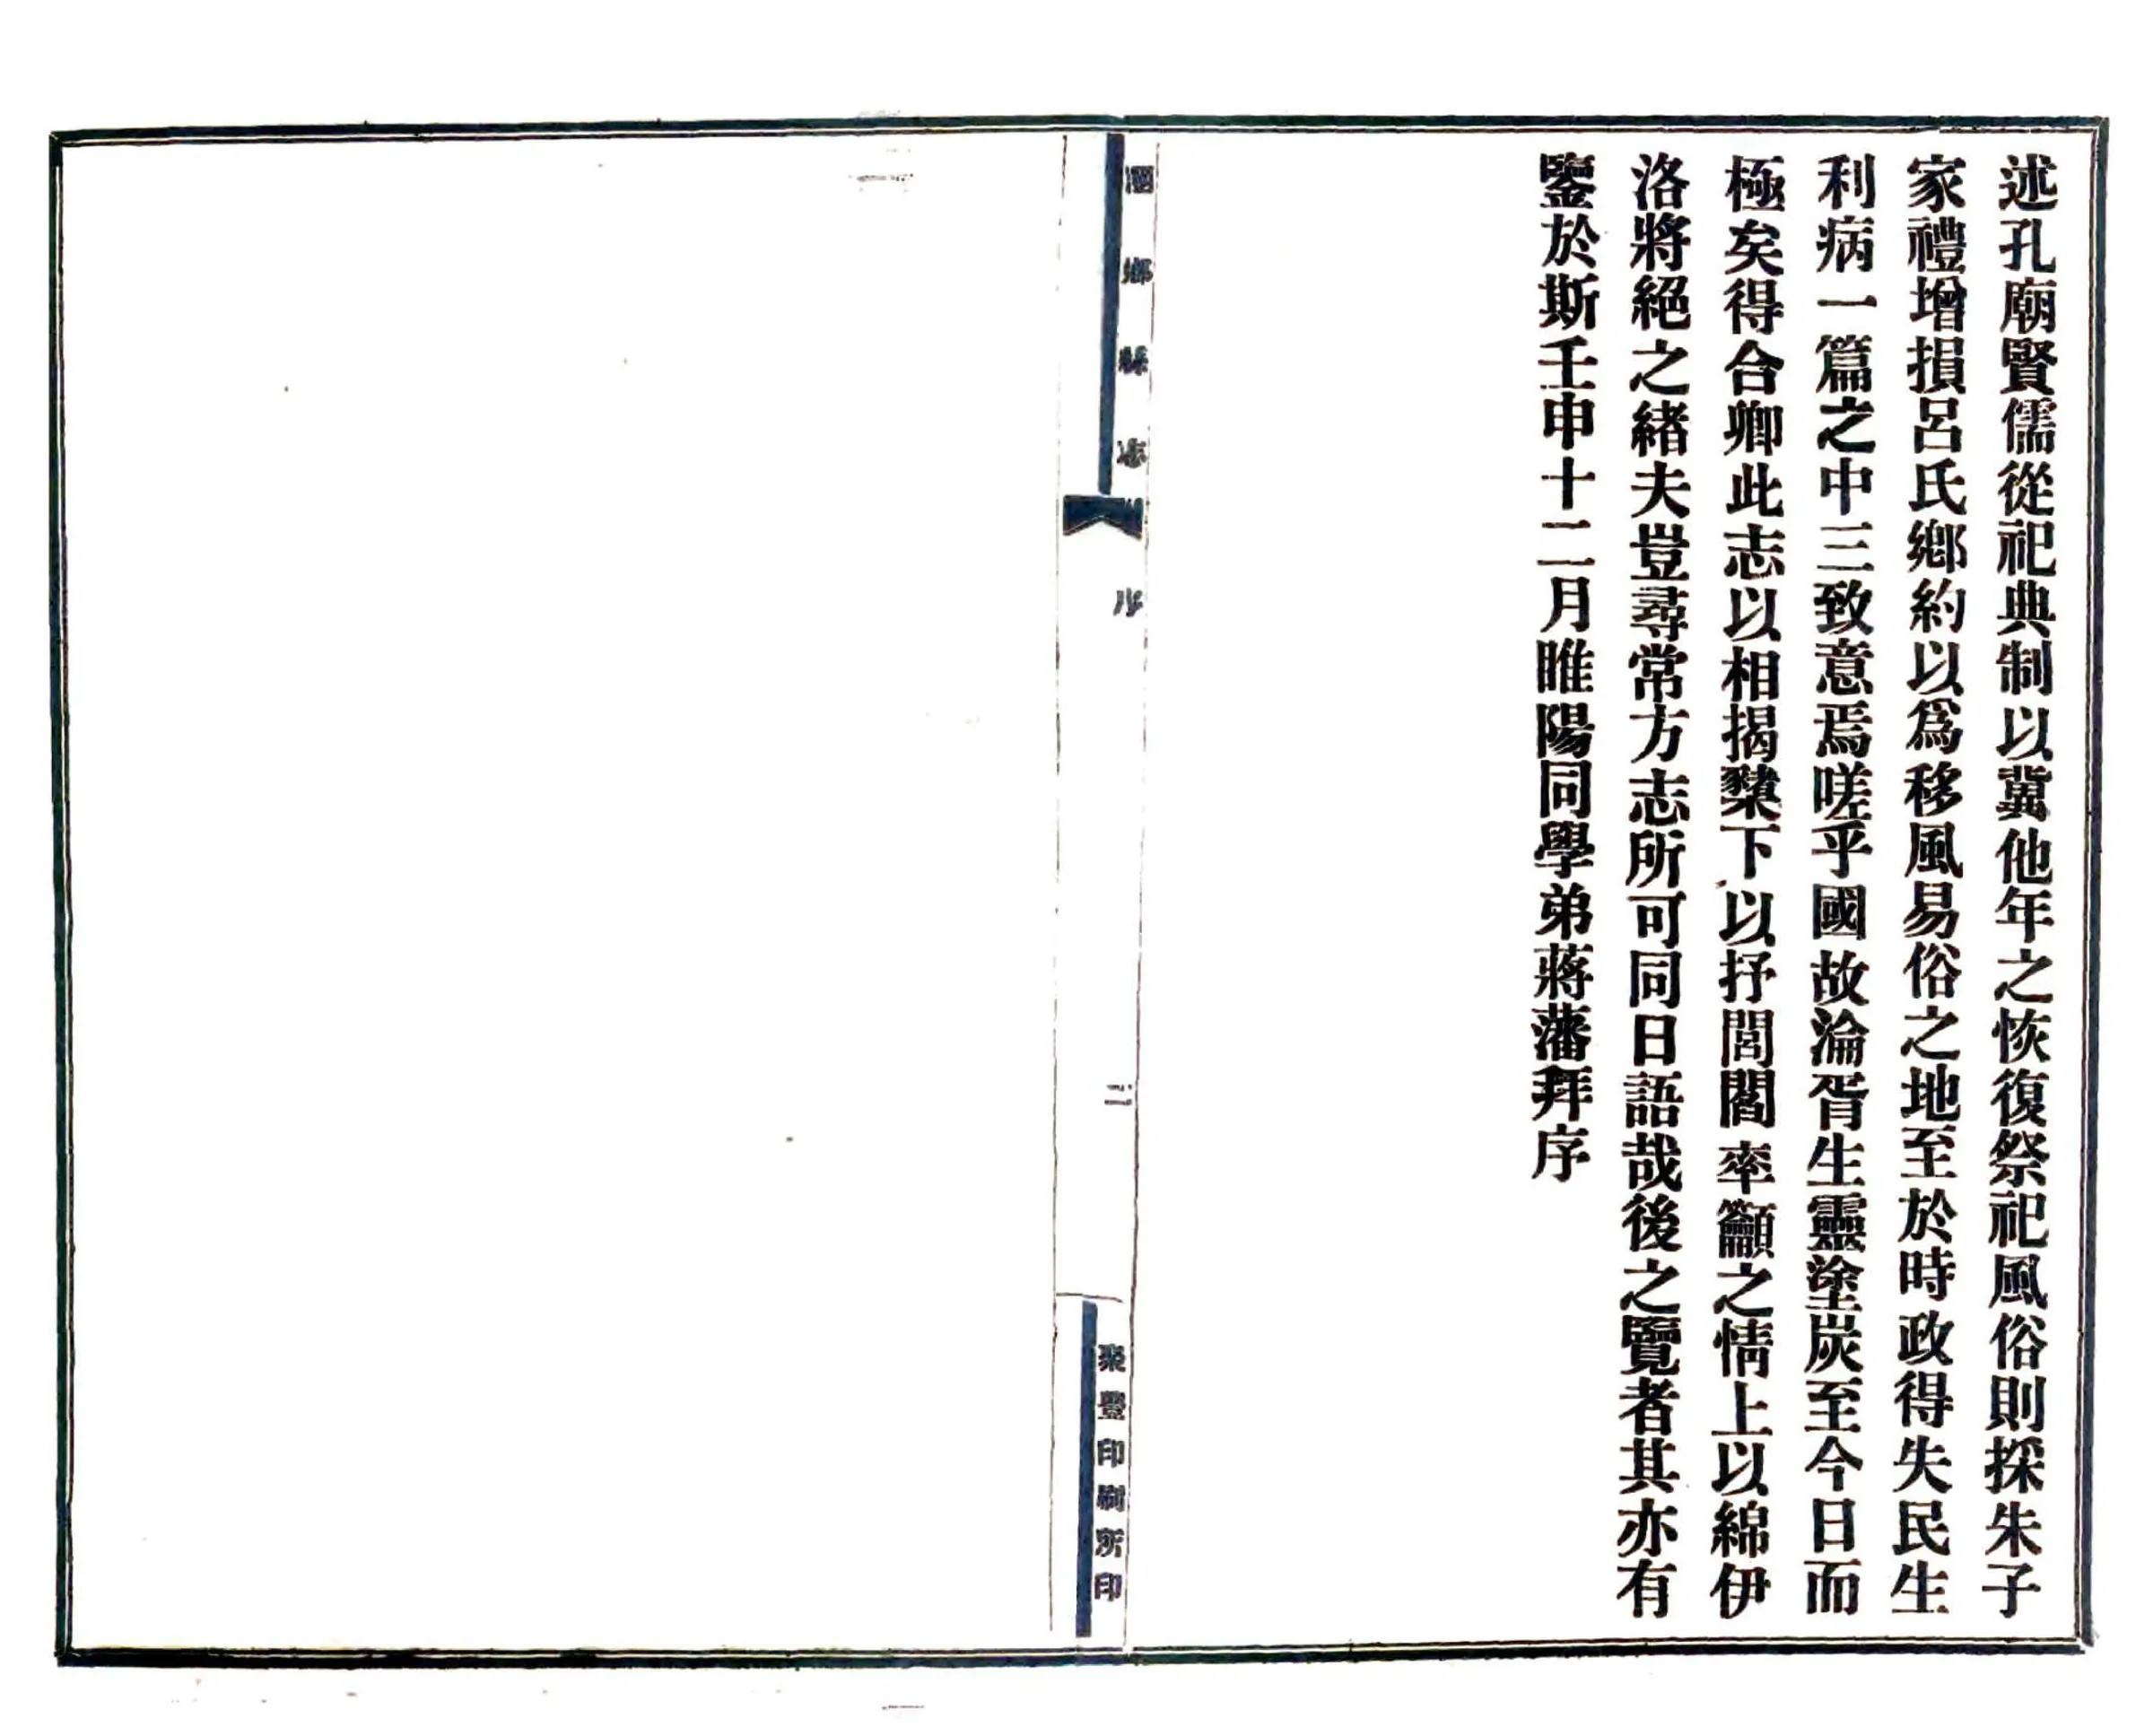 述孔廟賢儒從祀典制以冀他年之恢復祭祀風俗則採朱子
家禮增損呂氏鄉約以爲移風易俗之地至於時政得失民生
利病一篇之中三致意焉嗟乎國故淪胥生靈塗炭至今日而
極矣得合卿此志以相揭櫫下以抒閭閻率籲之情上以綿伊
洛將絕之緒夫豈尋常方志所可同日語哉後之覽者其亦有
鑒於斯壬申十二月睢陽同學弟蔣藩拜序
鄉縣志
序
二
聚豐印刷所印